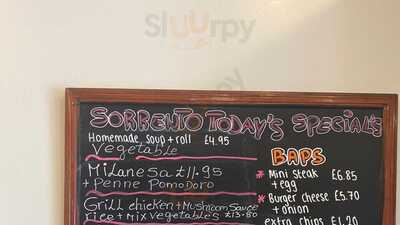 Sluurpy
SORRENTO TODAY'S SPECIAL'S
Homemade soup + roll £4.95
Vegetable
Milansa £11.95
+ Penne Pomodoro
Grill chicken + Mushroom Sauce
Rice + Mix Vegetables £13.80
BAPS
* Mini Steak £6.85
+ egg
* Burger cheese £5.70
+ onion
extra chips £1.20